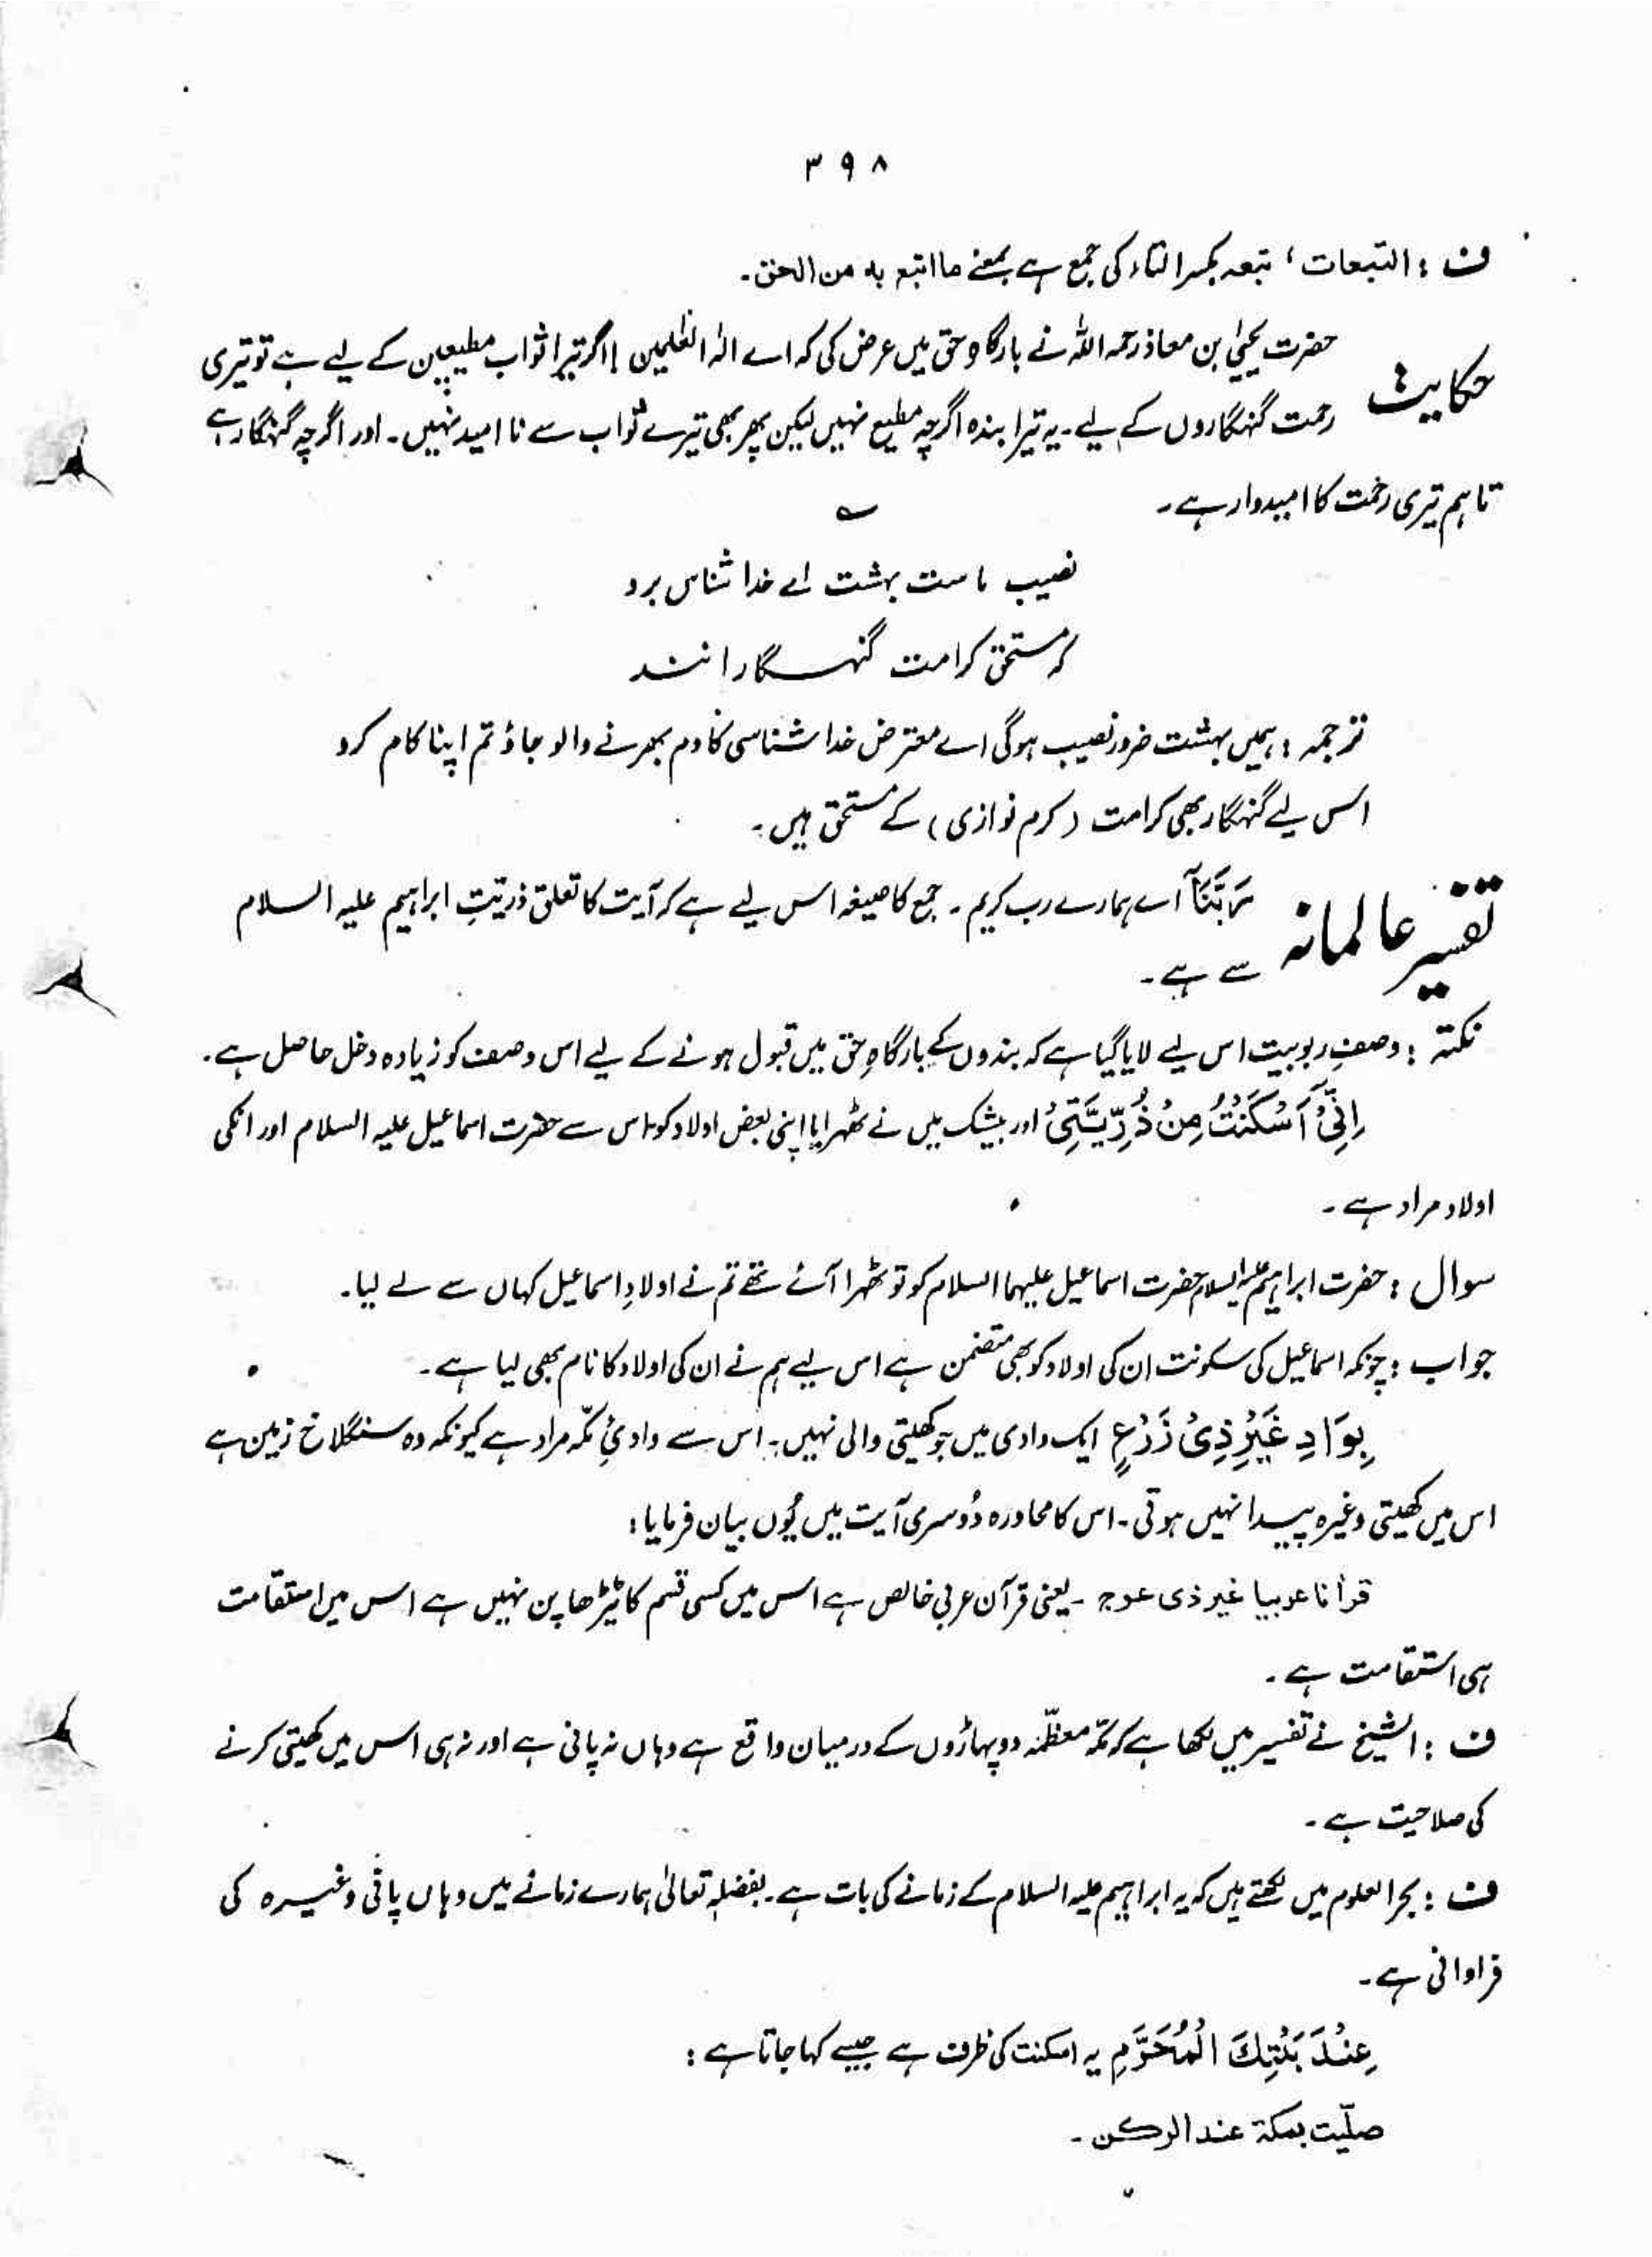 ۳۹۸
ف : التبعات ، تبعہ بکسر التاء کی جمع ہے بمعنے ما اتبع بہ من الحق۔
حکایت حضرت یحییٰ بن معاذ رحمہ اللہ نے بارگاہِ حق میں عرض کی کہ اے الٰہ العٰلمین ! اگر تیرا ثواب مطیعین کے لیے ہے تو تیری
رحمت گنہگاروں کے لیے۔ یہ تیرا بندہ اگرچہ مطیع نہیں لیکن پھر بھی تیرے ثواب سے نا امید نہیں۔ اور اگرچہ گنہگار ہے
تاہم تیری رحمت کا امیدوار ہے۔
نصیب ماست بہشت اے خدا شناس برو
کہ مستحق کرامت گنہگارانند
ترجمہ : ہمیں بہشت ضرور نصیب ہوگی اے معترض خدا شناسی کا دم بھرنے والو جاؤ تم اپنا کام کرو
اس لیے گنہگار بھی کرامت (کرم نوازی) کے مستحق ہیں۔
تفسیر عالمانہ رَبَّنَآ اے ہمارے رب کریم ۔ جمع کا صیغہ اس لیے ہے کہ آیت کا تعلق ذریّتِ ابراہیم علیہ السلام
سے ہے۔
نکتہ : وصفِ ربوبیت اس لیے لایا گیا ہے کہ بندوں کے بارگاہِ حق میں قبول ہونے کے لیے اس وصف کو زیادہ دخل حاصل ہے۔
اِنِّیْٓ اَسْکَنْتُ مِنْ ذُرِّیَّتِیْ اور بیشک میں نے ٹھہرایا اپنی بعض اولاد کو، اس سے حضرت اسماعیل علیہ السلام اور انکی
اولاد مراد ہے۔
سوال : حضرت ابراہیم علیہ السلام حضرت اسماعیل علیہما السلام کو تو ٹھہرا آئے تھے تم نے اولادِ اسماعیل کہاں سے لے لیا۔
جواب : چونکہ اسماعیل کی سکونت ان کی اولاد کو بھی متضمن ہے اس لیے ہم نے ان کی اولاد کا نام بھی لیا ہے۔
بِوَادٍ غَیْرِ ذِیْ زَرْعٍ ایک وادی میں جو کھیتی والی نہیں۔ اس سے وادیٔ مکّہ مراد ہے کیونکہ وہ سنگلاخ زمین ہے
اس میں کھیتی وغیرہ پیدا نہیں ہوتی۔ اس کا محاورہ دُوسری آیت میں یُوں بیان فرمایا :
قراٰنا عربیا غیر ذی عوج ۔ یعنی قرآن عربی خالص ہے اس میں کسی قسم کا ٹیڑھا پن نہیں ہے اس میں استقامت
ہی استقامت ہے۔
ف : الشیخ نے تفسیر میں لکھا ہے کہ مکّہ معظّمہ دو پہاڑوں کے درمیان واقع ہے وہاں نہ پانی ہے اور نہ ہی اس میں کھیتی کرنے
کی صلاحیت ہے۔
ف : بحر العلوم میں لکھتے ہیں کہ یہ ابراہیم علیہ السلام کے زمانے کی بات ہے۔ بفضلہٖ تعالیٰ ہمارے زمانے میں وہاں پانی وغیرہ کی
فراوانی ہے۔
عِنْدَ بَیْتِکَ الْمُحَرَّمِ یہ اسکنت کی ظرف ہے جیسے کہا جاتا ہے :
صلّیت بمکۃ عند الرکن۔